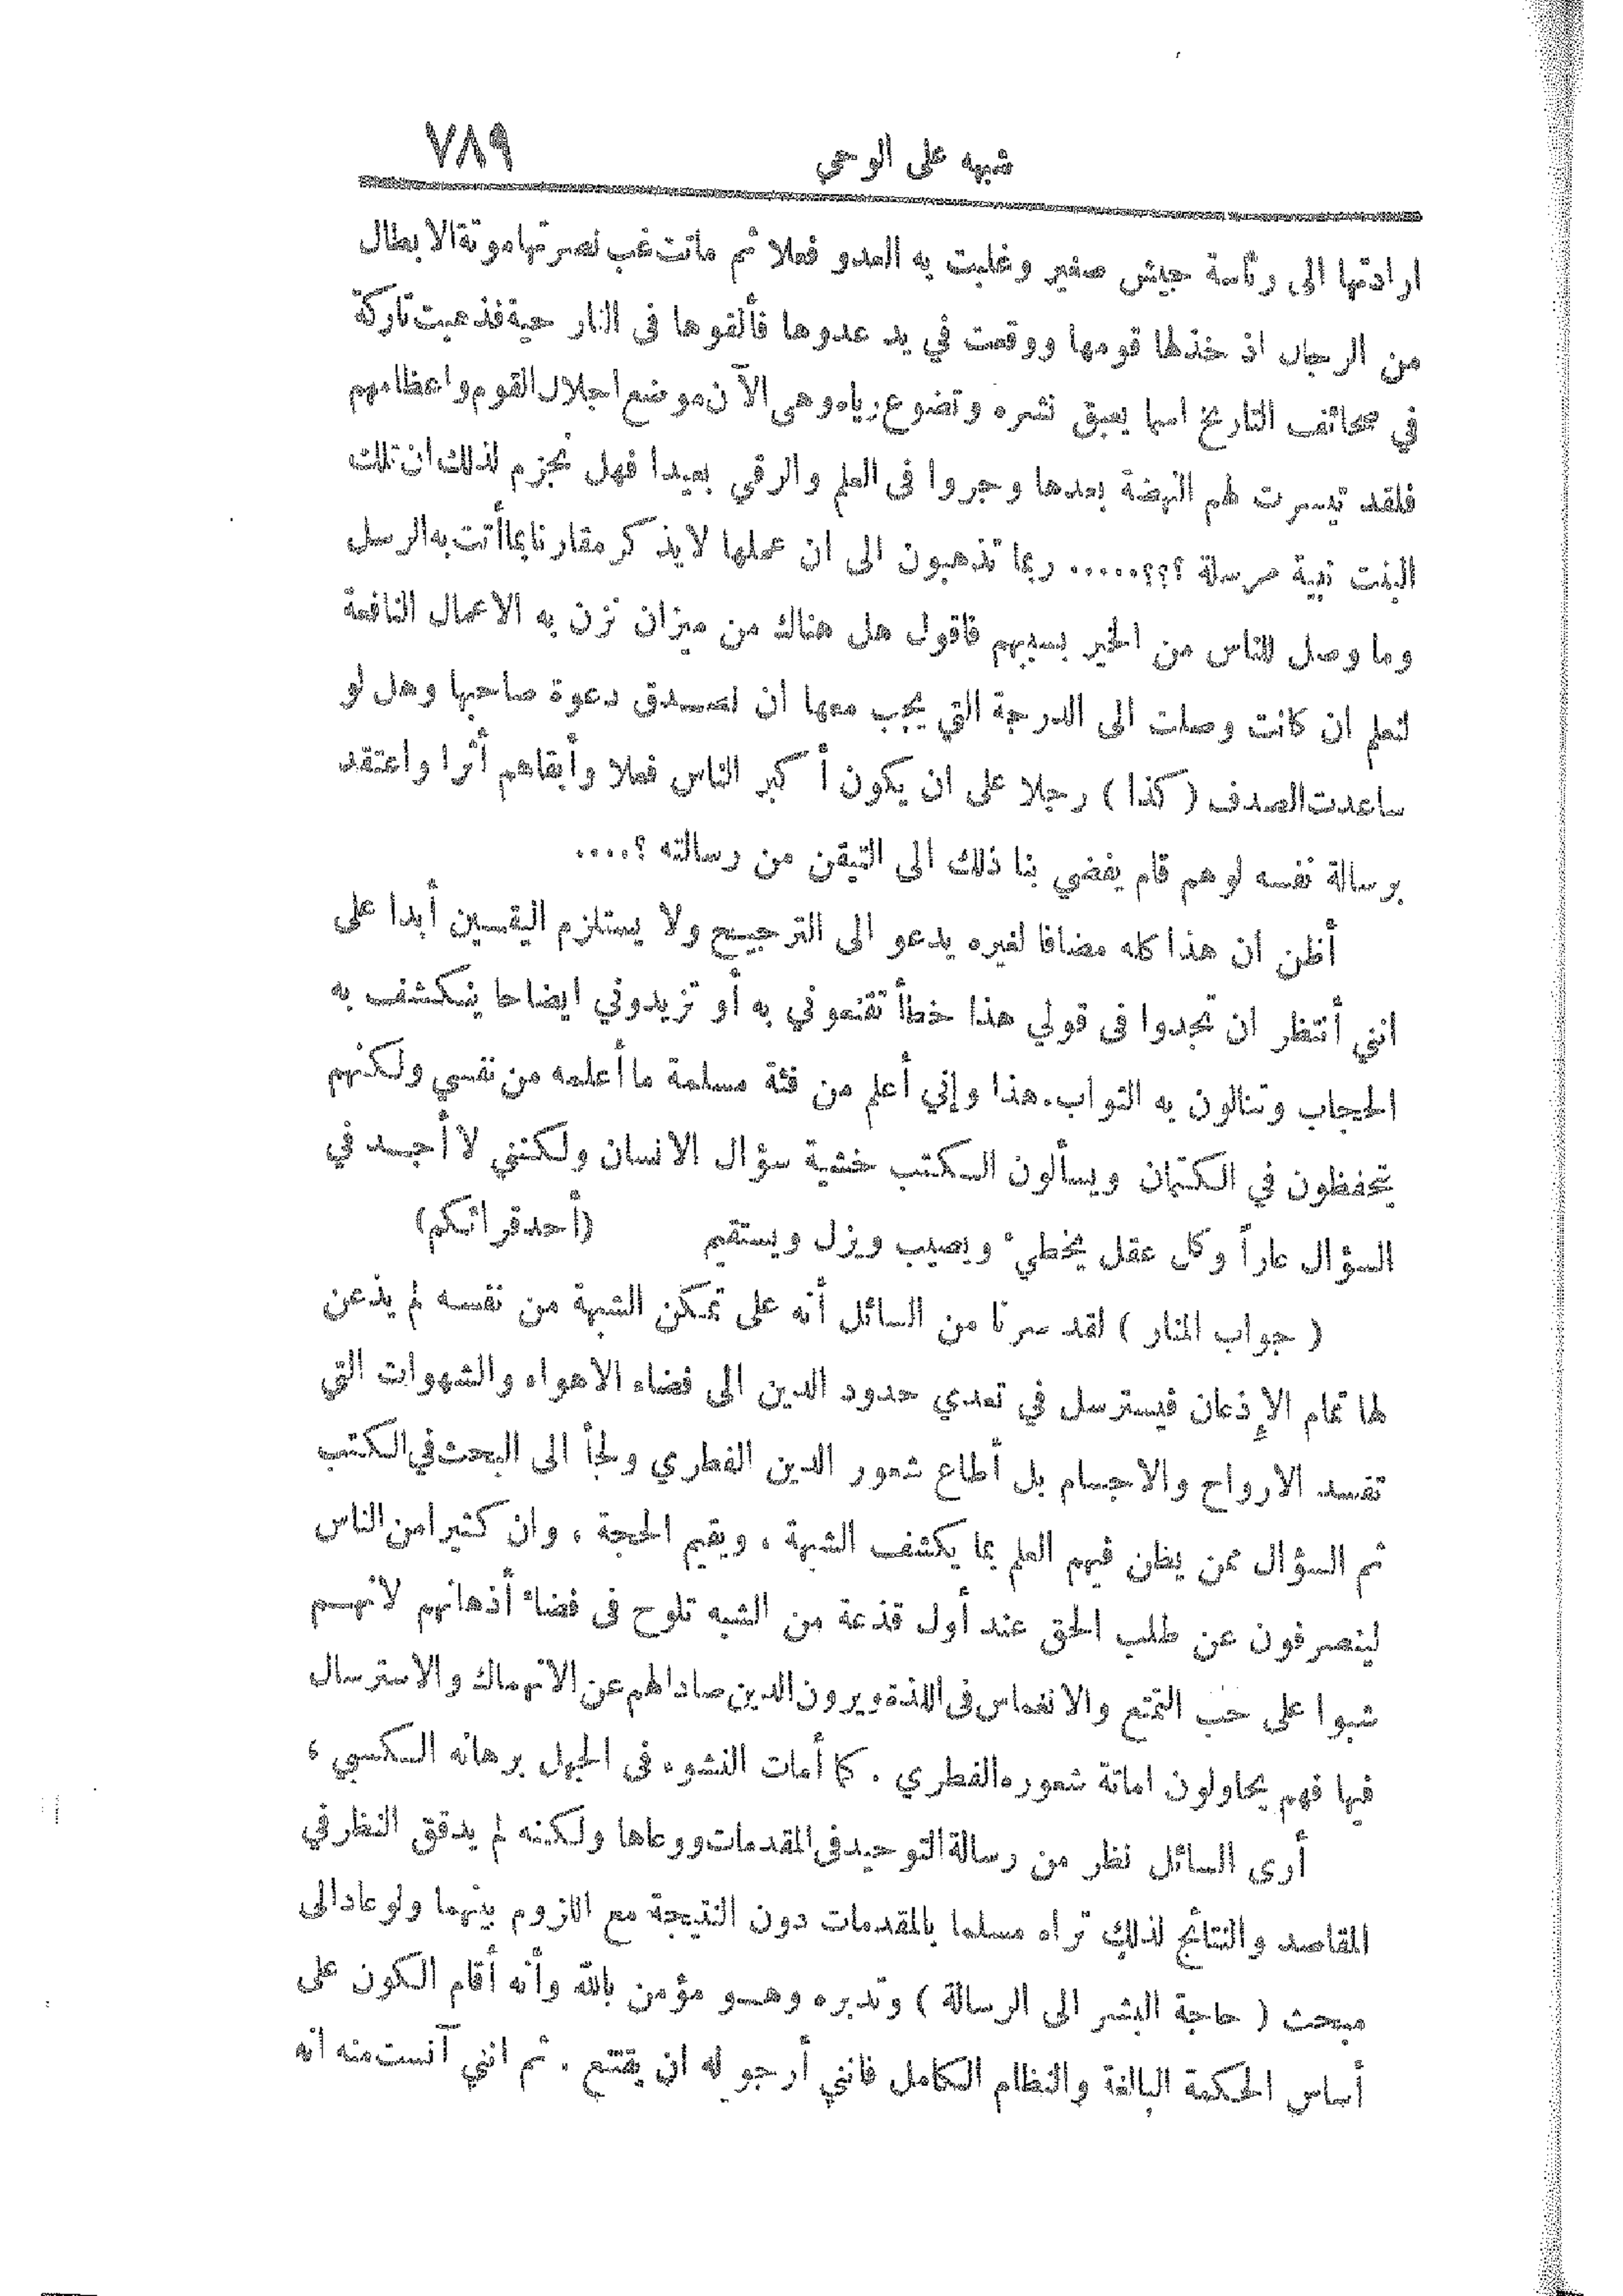 شبهه على الوحي ٧٨٩
ارادتها الى رئاسة جيش صغير وغلبت به العدو فعلا ثم ماتت غب نصرتها موتة الابطال
من الرجال اذ خذلها قومها ووقعت في يد عدوها فألقوها فى النار حية فذهبت تاركة
في صحائف التاريخ اسما يعبق نشره وتضوع رياه وهى الآن موضع اجلال القوم واعظامهم
فلقد تيسرت لهم النهضة بعدها وجروا فى العلم والرقي بعيدا فهل نجزم لذلك ان تلك
البنت نبية مرسلة ؟؟؟..... ربما تذهبون الى ان عملها لا يذكر مقارنا بما أتت به الرسل
وما وصل للناس من الخير بسببهم فاقول هل هناك من ميزان نزن به الاعمال النافعة
لنعلم ان كانت وصلت الى الدرجة التي يجب معها ان نصدق دعوة صاحبها وهل لو
ساعدت الصدف ( كذا ) رجلا على ان يكون أكبر الناس فعلا وأبقاهم أثرا واعتقد
برسالة نفسه لوهم قام يفضي بنا ذلك الى التيقن من رسالته ؟....
أظن ان هذا كله مضافا لغيره يدعو الى الترجيح ولا يستلزم اليقين أبدا على
انني أنتظر ان تجدوا فى قولي هذا خطأ تقنعوني به أو تزيدوني ايضاحا ينكشف به
الحجاب وتنالون به الثواب. هذا وإني أعلم من فئة مسلمة ما أعلمه من نفسي ولكنهم
يتحفظون في الكتمان ويسألون الكتب خشية سؤال الانسان ولكنني لا أجد في
السؤال عاراً وكل عقل يخطيء ويصيب ويزل ويستقيم (أحد قرائكم)
( جواب المنار ) لقد سرنا من السائل أنه على تمكن الشبهة من نفسه لم يذعن
لها تمام الإذعان فيسترسل في تعدي حدود الدين الى فضاء الاهواء والشهوات التي
تفسد الارواح والاجسام بل أطاع شعور الدين الفطري ولجأ الى البحث في الكتب
ثم السؤال ممن يظن فيهم العلم بما يكشف الشبهة ، ويقيم الحجة ، وان كثيرا من الناس
لينصرفون عن طلب الحق عند أول قذعة من الشبه تلوح فى فضاء أذهانهم لانهم
شبوا على حب التمتع والانغماس فى اللذة ويرون الدين صادا لهم عن الانهماك والاسترسال
فيها فهم يحاولون اماتة شعوره الفطري . كما أمات النشوء فى الجهل برهانه الكسبي ،
أرى السائل نظر من رسالة التوحيد فى المقدمات ووعاها ولكنه لم يدقق النظر في
المقاصد والنتائج لذلك تراه مسلما بالمقدمات دون النتيجة مع اللزوم بينهما ولو عاد الى
مبحث ( حاجة البشر الى الرسالة ) وتدبره وهو مؤمن بالله وأنه أقام الكون على
أساس الحكمة البالغة والنظام الكامل فانني أرجو له ان يقتنع . ثم انني آنست منه انه